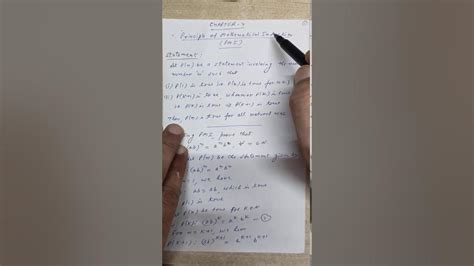 CHAPTER-4
Principle of Mathematical Induction
(PMI)
Statement:
Let P(n) be a statement involving the
number 'n' such that
(i) P(1) is true i.e. P(n) is true for n=1
(ii) P(k+1) is true whenever P(k) is true
i.e. P(k) is true P(k+1) is true
Then P(n) is true for all natural
PMI, prove that
(ab)^n = a^n b^n
Let P(n) be the statement given
(ab)^n = a^n b^n
=1, we have
ab = ab, which is true
P(1) is true
P(n) be true for
P(k): (ab)^k = a^k b^k
n = k+1, we have
P(k+1): (ab)^{k+1} = a^{k+1} b^{k+1}